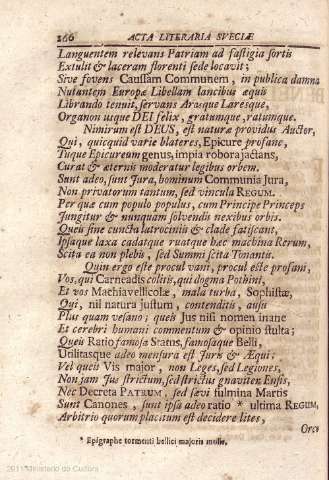 266 ACTA LITERARIA SVECIÆ
Languentem relevans Patriam ad fastigia sortis
Extulit & laceram florenti sede locavit;
Sive fovens Caussam Communem, in publica damna
Nutantem Europæ Libellam lancibus æquis
Librando tenuit, servans Arasque Laresque,
Organon usque DEI felix, gratumque, ratumque.
Nimirum est DEUS, est naturæ providus Auctor,
Qui, quicquid varie blateres, Epicure profane,
Tuque Epicureum genus, impia robora jactans,
Curat & æternis moderatur legibus orbem.
Sunt adeo, sunt Jura, hominum Communia Jura,
Non privatorum tantum, sed vincula REGUM.
Per quæ cum populo populus, cum Principe Princeps
Jungitur & nunquam solvendis nexibus orbis.
Queis sine cuncta latrociniis & clade fatiscant,
Ipsaque laxa cadatque ruatque hæc machina Rerum,
Scita ea non plebis, sed Summi scita Tonantis.
Quin ergo este procul vani, procul este profani,
Vos, qui Carneadis colitis, qui dogma Pothini,
Et vos Machiavellicolæ, mala turba, Sophistæ,
Qui, nil natura justum, contenditis, ausu
Plus quam vesano; queis Jus nisi nomen inane
Et cerebri humani commentum & opinio stulta;
Queis Ratio famosa Status, famosaque Belli,
Utilitasque adeo mensura est Juris & Æqui;
Vel queis Vis major, non Leges, sed Legiones,
Non jam Jus strictum, sed strictus gnaviter Ensis,
Nec Decreta PATRUM, sed sævi fulmina Martis
Sunt Canones, sunt ipsa adeo ratio * ultima REGUM,
Arbitrio quorum placitum est decidere lites,
Orco
* Epigraphe tormenti bellici majoris molis.
2011 Ministerio de Cultura